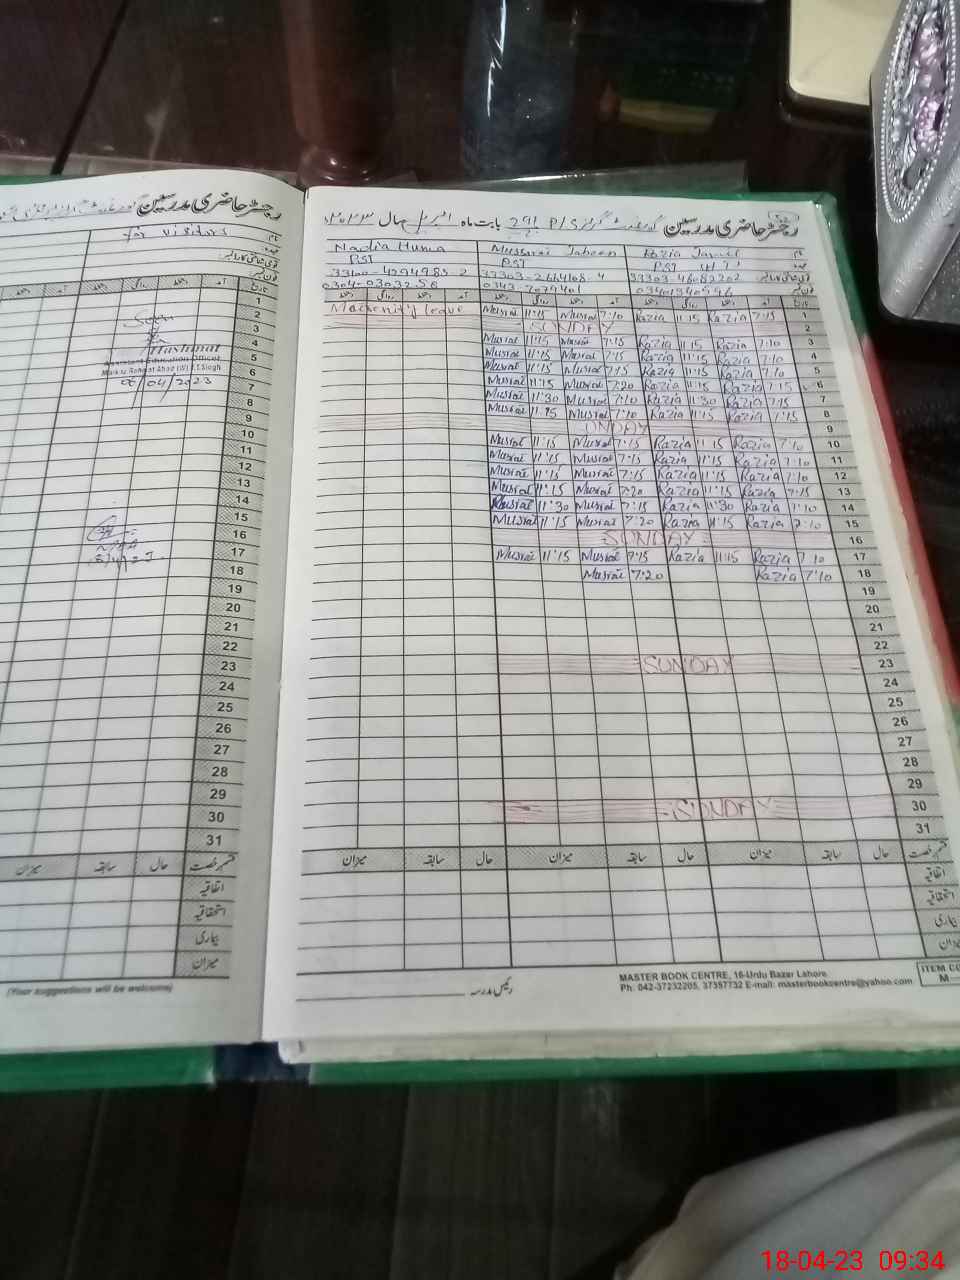 رجسٹر حاضری مدرسین
for visitors
نام
عہدہ
تاریخ آمد دستخط روانگی دستخط
1
2
3
4
5
6
7
8
9
10
11
12
13
14
15
16
17
18
19
20
21
22
23
24
25
26
27
28
29
30
31
Seen
Assistant Education Officer
06/04/2023
قسم رخصت حال سابقہ میزان
اتفاقیہ
استحقاقیہ
بیماری
میزان
(Your suggestions will be welcome)
رجسٹر حاضری مدرسین 291 P/S بابت ماہ اپریل سال ۲۰۲۳
نام Razia Mussarat Jabeen Nadia Huma
عہدہ PST PST PST
33303-4608220-2 33303-2664168-4 33100-4294985-2
0343-7079401
تاریخ آمد دستخط روانگی دستخط
Maternity leave Musrat 11:15 Musrat 7:10 Razia 11:15 Razia 7:15 1
SUNDAY 2
Musrat 11:15 Musrat 7:15 Razia 11:15 Razia 7:10 3
Musrat 11:15 Musrat 7:15 Razia 11:15 Razia 7:10 4
Musrat 11:15 Musrat 7:15 Razia 11:15 Razia 7:10 5
Musrat 11:15 Musrat 7:20 Razia 11:15 Razia 7:15 6
Musrat 11:30 Musrat 7:10 Razia 11:30 Razia 7:15 7
Musrat 11:15 Musrat 7:10 Razia 11:15 Razia 7:15 8
UNDAY 9
Musrat 11:15 Musrat 7:15 Razia 11:15 Razia 7:10 10
Musrat 11:15 Musrat 7:15 Razia 11:15 Razia 7:10 11
Musrat 11:15 Musrat 7:15 Razia 11:15 Razia 7:10 12
Musrat 11:15 Musrat 7:20 Razia 11:15 Razia 7:15 13
Musrat 11:30 Musrat 7:15 Razia 11:30 Razia 7:10 14
Musrat 11:15 Musrat 7:20 Razia 11:15 Razia 7:10 15
SUNDAY 16
Musrat 11:15 Musrat 7:15 Razia 11:15 Razia 7:10 17
Musrat 7:20 Razia 7:10 18
19
20
21
22
SUNDAY 23
24
25
26
27
28
29
SUNDAY 30
31
قسم رخصت حال سابقہ میزان حال سابقہ میزان حال سابقہ میزان
اتفاقیہ
استحقاقیہ
بیماری
میزان
رئیس مدرسہ
MASTER BOOK CENTRE, 16-Urdu Bazar Lahore.
Ph: 042-37232205, 37357732 E-mail: masterbookcentre@yahoo.com
ITEM CO
M
18-04-23 09:34